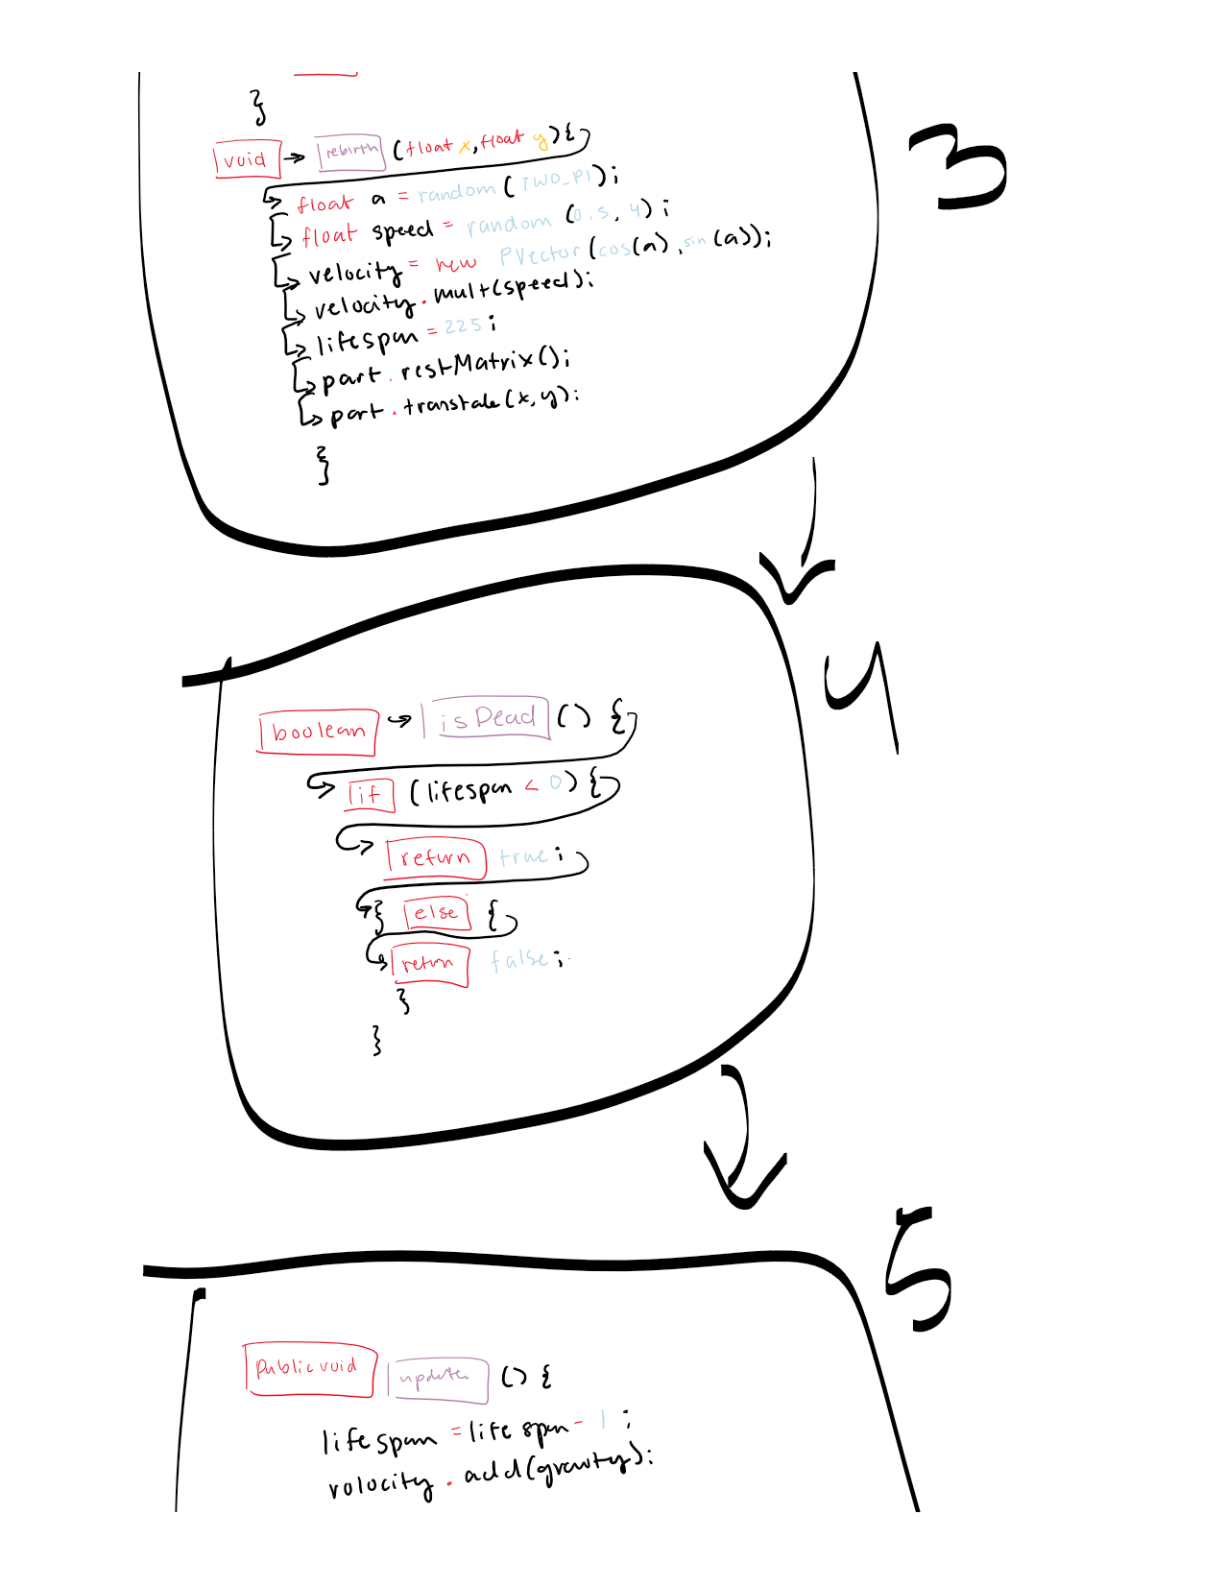 }
3
void → rebirth (float x, float y) {
float a = random (TWO_PI);
float speed = random (0.5, 4);
velocity = new PVector (cos(a), sin(a));
velocity.mult(speed);
lifespan = 225;
part.restMatrix();
part.translate(x, y);
}
4
boolean → isDead () {
if (lifespan < 0) {
return true;
} else {
return false;
}
}
5
public void update () {
lifespan = lifespan - 1;
volocity.add(gravity);